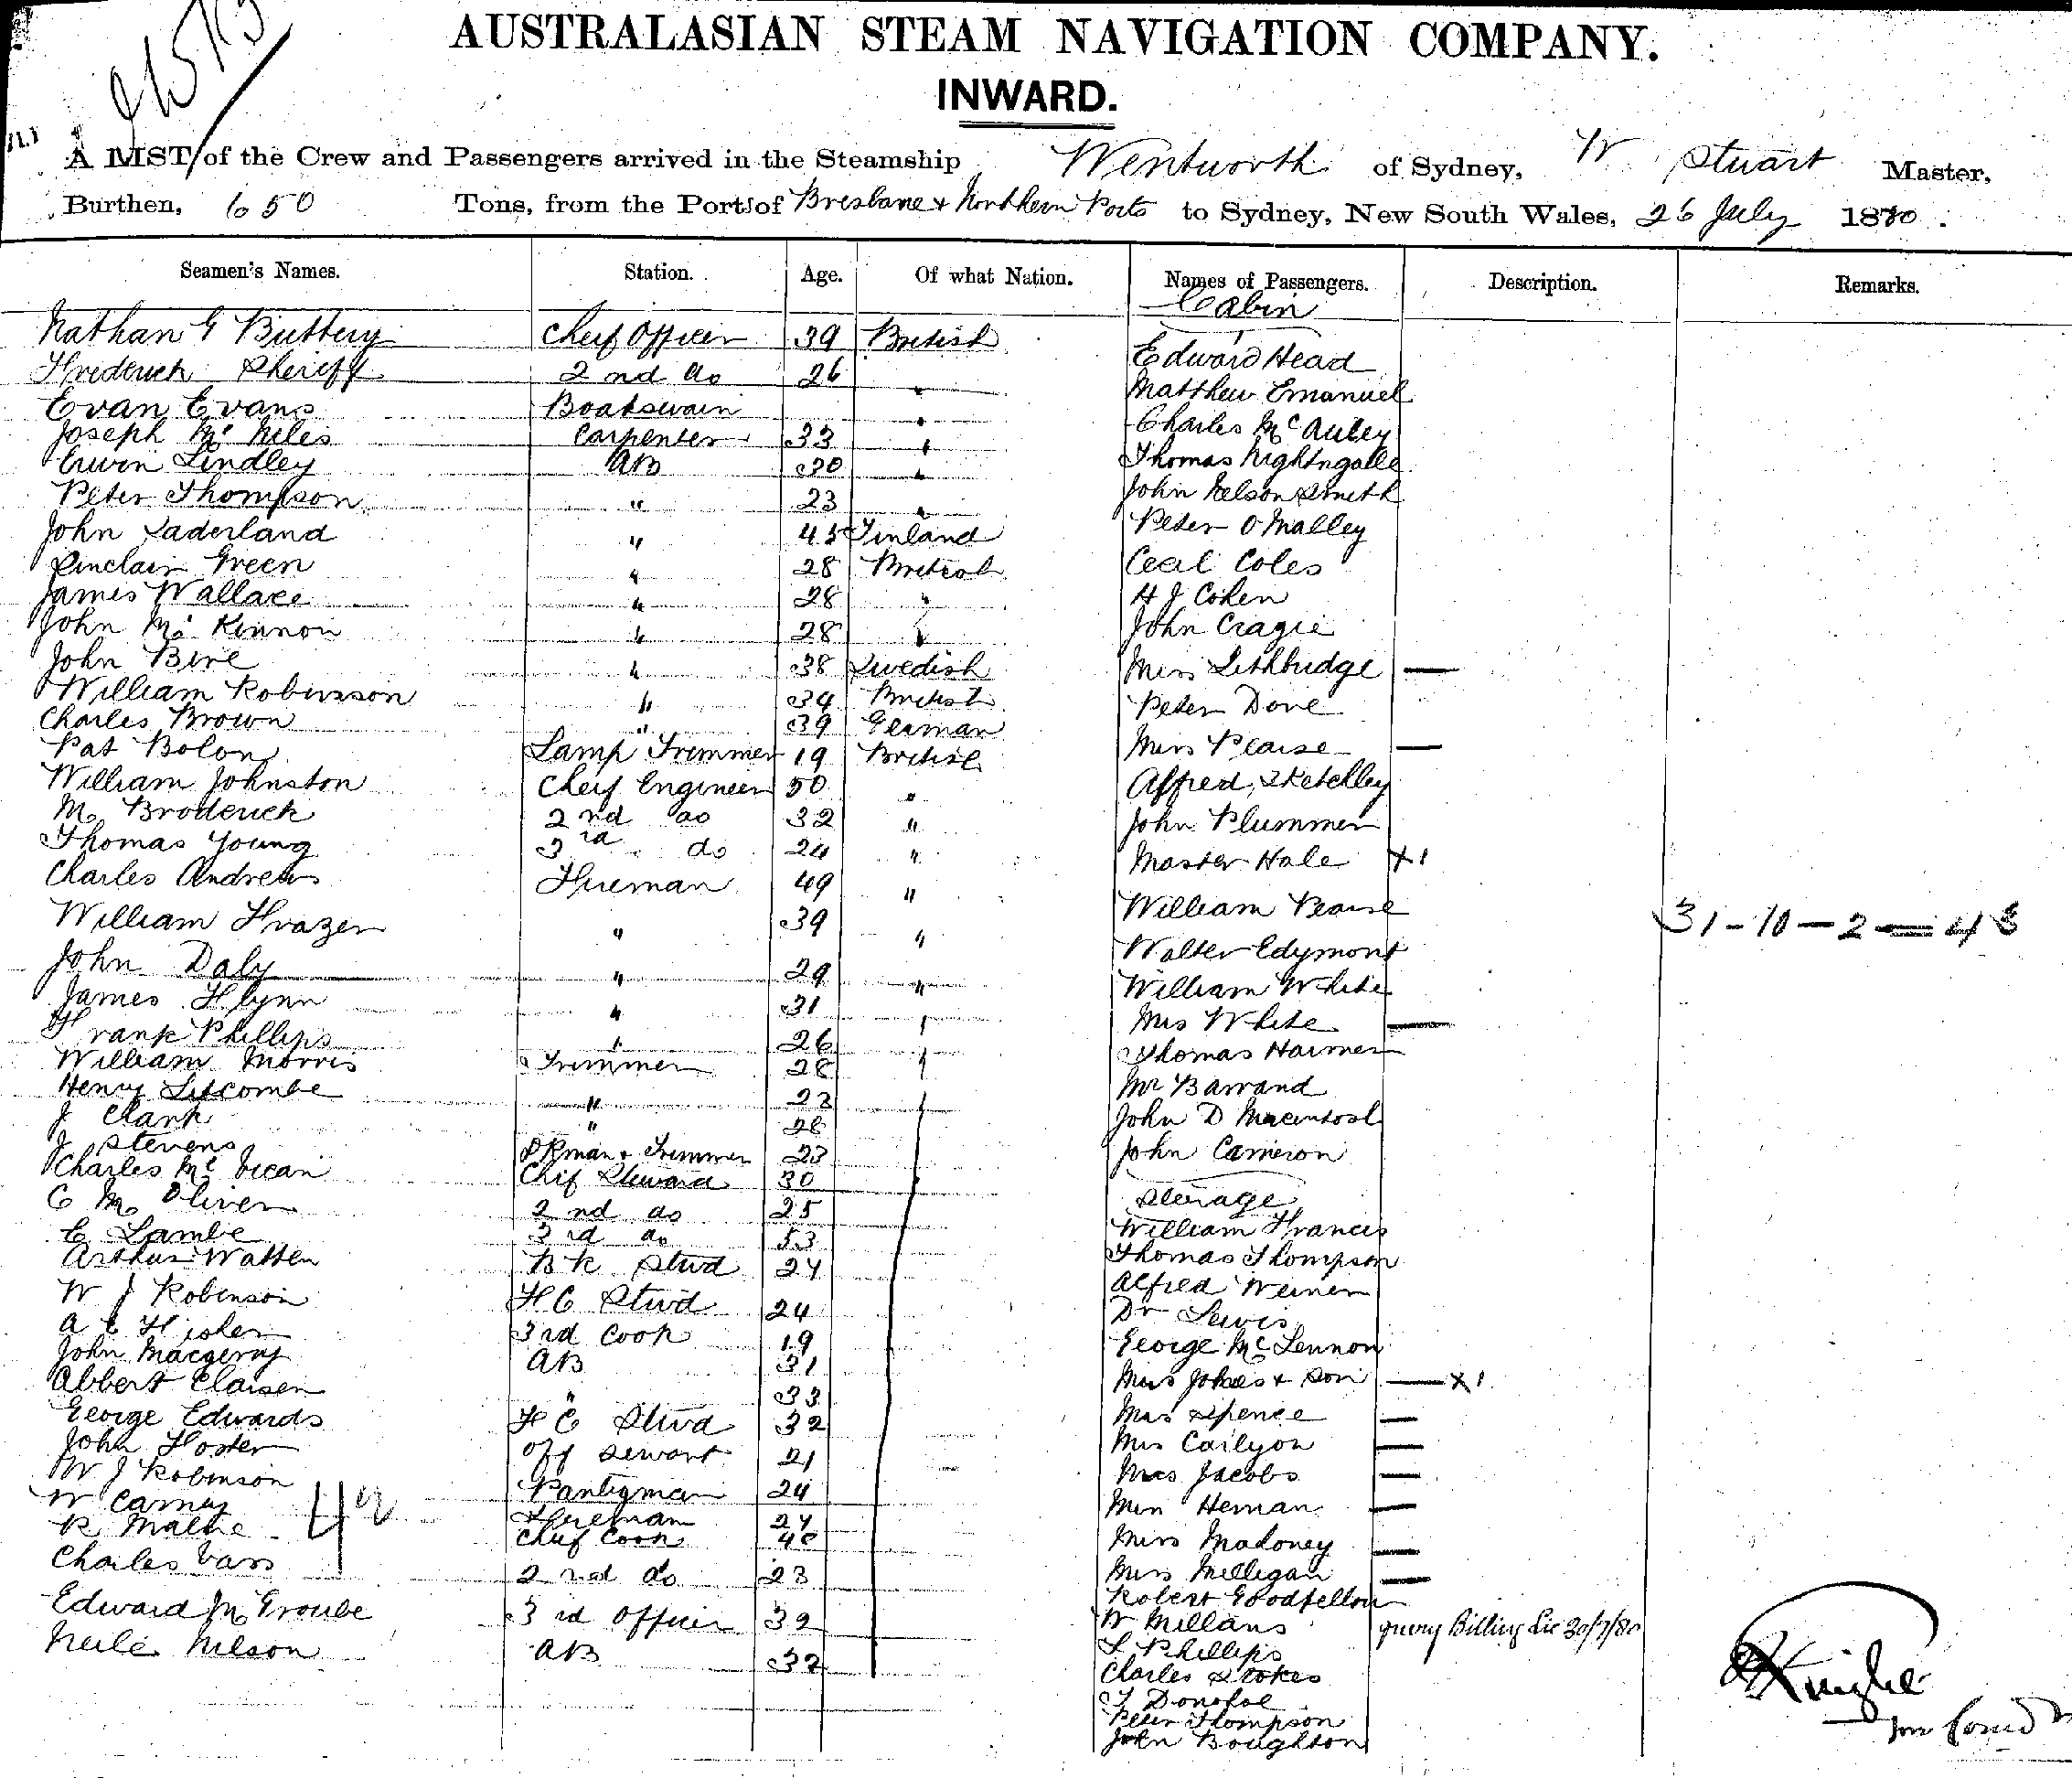 AUSTRALASIAN STEAM NAVIGATION COMPANY.
INWARD.
A LIST of the Crew and Passengers arrived in the Steamship Wentworth of Sydney, W Stuart Master,
Burthen, 650 Tons, from the Port of Brisbane & Northern Ports to Sydney, New South Wales, 26 July 1880.
Seamen's Names. Station. Age. Of what Nation. Names of Passengers. Description. Remarks.
Cabin
Nathan G Buttery Cheif Officer 39 British Edward Head
Frederick Sheriff 2nd do 26 " Matthew Emanuel
Evan Evans Boatswain " Charles McAuley
Joseph McNiles Carpenter 33 " Thomas Nightngalle
Erwin Lindley AB 30 " John Nelson Smith
Peter Thompson " 23 " Peter O Malley
John Laderland " 45 Finland Cecil Coles
Sinclair Green " 28 British H J Cohen
James Wallace " 28 " John Cragie
John McKinnon " 28 " Miss Lethbridge —
John Bire " 38 Swedish Peter Dove
William Robinsson " 34 British Miss Pearse —
Charles Brown " 39 German Alfred Sketchley
Pat Bolon Lamp Trimmer 19 British John Plummer
William Johnston Cheif Engineer 50 " Master Hale x1
M Broderick 2nd do 32 " William Pearse
Thomas Young 3rd do 24 " Walter Edymont
Charles Andrews Fireman 49 " William White
William Frazer " 39 " Mrs White —
31-10-2=43
John Daly " 29 " Thomas Harmer
James Flynn " 31 " Mr Barrand
Frank Phillips " 26 " John D Macintosh
William Morris Trimmer 28 " John Cameron
Henry Liscombe " 23
Steerage
J Clark " 28 William Francis
J Stevens & Trimmer 23 Thomas Thompson
Charles McVican Chif Steward 30 Alfred Weiner
C M Oliver 2nd do 25 Dr Lewis
E Lambe 3rd do 53 George McLennon
Arthur Watten Bk Stwd 24 Mrs & Son — x1
W J Robinson FC Stwd 24 Mrs Spence —
A E Fisher 3rd Cook 19 Mrs Carlyon —
John Macgeroy AB 31 Mrs Jacobs —
Albert Claisen " 33 Heman —
George Edwards FC Stwd 32 Miss Mahoney —
John Foster Off Servant 21 Miss Milligan —
W J Robinson Pantryman 24 Robert Goodfellow
W Carney Fireman 24 W Millans query Billing 30/7/80
R Chief Cook 40 L Phillips
Charles Vass 2nd do 23 Charles Stokes
Edward M Groube 3rd Officer 32 T Donohoe
Neile Nilson AB 32 Peter Thompson
John Boughton